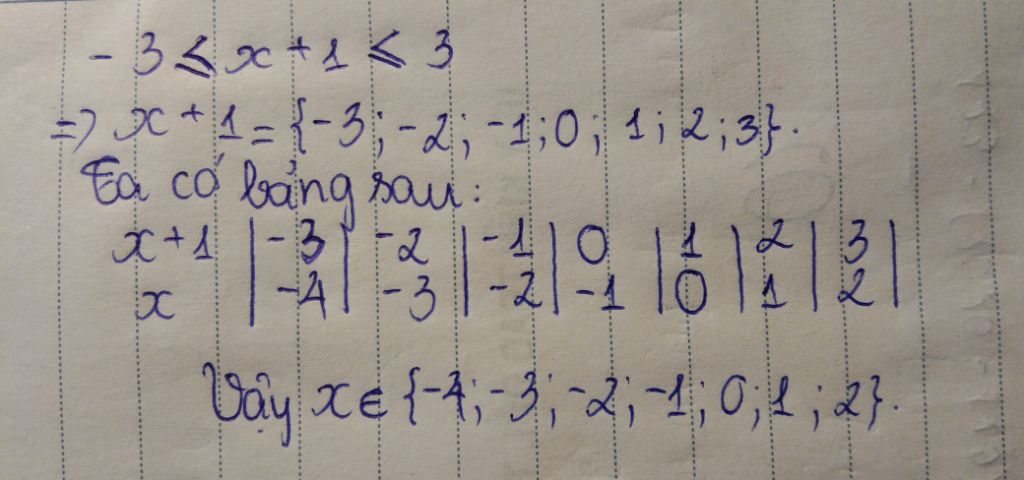 - 3 ≤ x + 1 ≤ 3
=> x + 1 = {-3; -2; -1; 0; 1; 2; 3}.
Ta có bảng sau:
x + 1 | -3 | -2 | -1 | 0 | 1 | 2 | 3 |
x | -4 | -3 | -2 | -1 | 0 | 1 | 2 |
Vậy x ∈ {-4; -3; -2; -1; 0; 1; 2}.